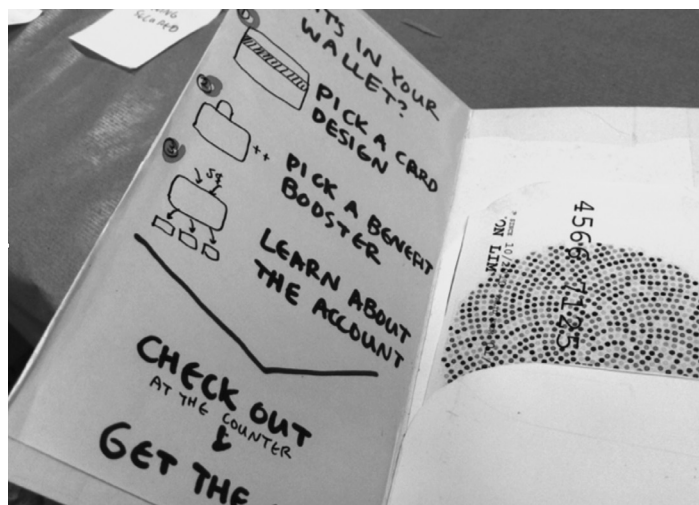 TS IN YOUR
WALLET?
PICK A CARD
DESIGN
++
PICK A BENEFIT
BOOSTER
LEARN ABOUT
THE ACCOUNT
CHECK OUT
AT THE COUNTER
GET THE
4566 7125
SINCE 10/2
ON LIM